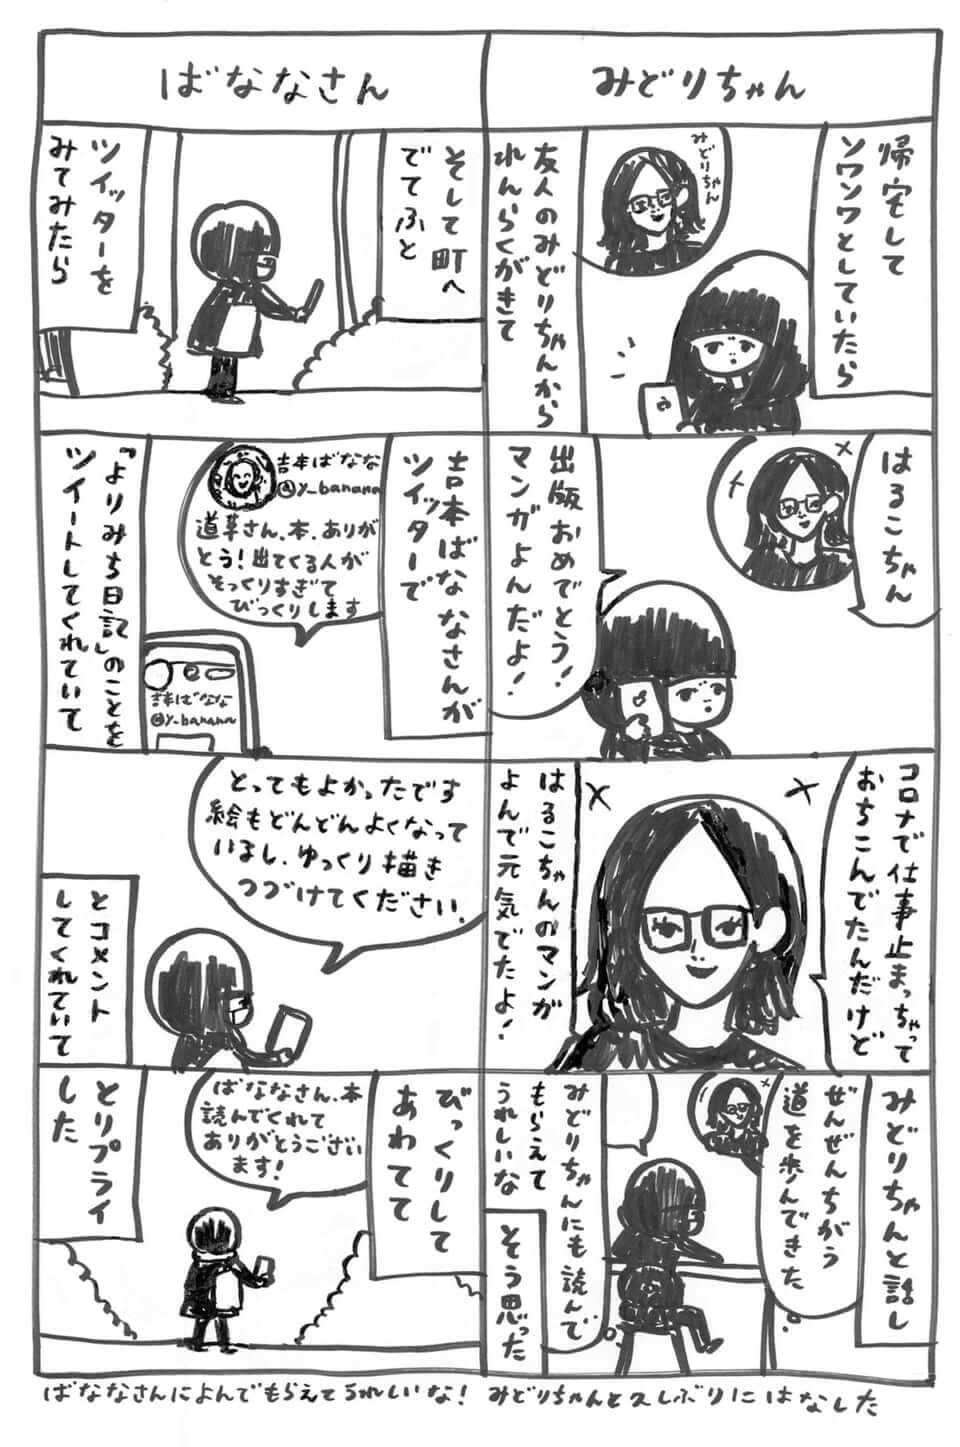 みどりちゃん
帰宅して
ソワソワとしていたら
みどりちゃん
友人のみどりちゃんから
れんらくがきて
はるこちゃん
出版おめでとう!
マンガよんだよ!
コロナで仕事止まっちゃって
おちこんでたんだけど
はるこちゃんのマンガ
よんで元気でたよ!
みどりちゃんと話し
ぜんぜんちがう
道を歩んできた
みどりちゃんにも読んで
もらえて
うれしいな
そう思った
みどりちゃんと久しぶりにはなした
ばななさん
そして町へ
でてふと
ツイッターを
みてみたら
吉本ばななさんが
ツイッターで
吉本ばなな
@y_banana
道草さん、本、ありが
とう!出てくる人が
そっくりすぎて
びっくりします
吉本ばなな
@y_banana
「よりみち日記」のことを
ツイートしてくれていて
とってもよかったです
絵もどんどんよくなって
いるし、ゆっくり描き
つづけてください。
とコメント
してくれていて
びっくりして
あわてて
ばななさん、本
読んでくれて
ありがとうござい
ます!
とリプライ
した
ばななさんによんでもらえてうれしいな!